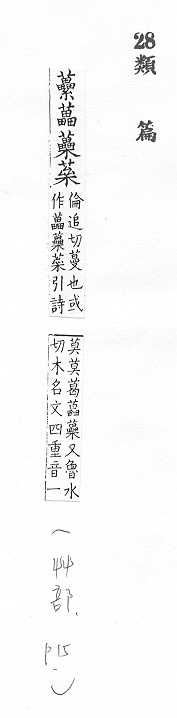 28
類篇
虆藟蘽蔂
倫追切蔓也或
作藟蘽蔂引詩
莫莫葛藟蘽又魯水
切木名文四重音一
(艸部. p15.)